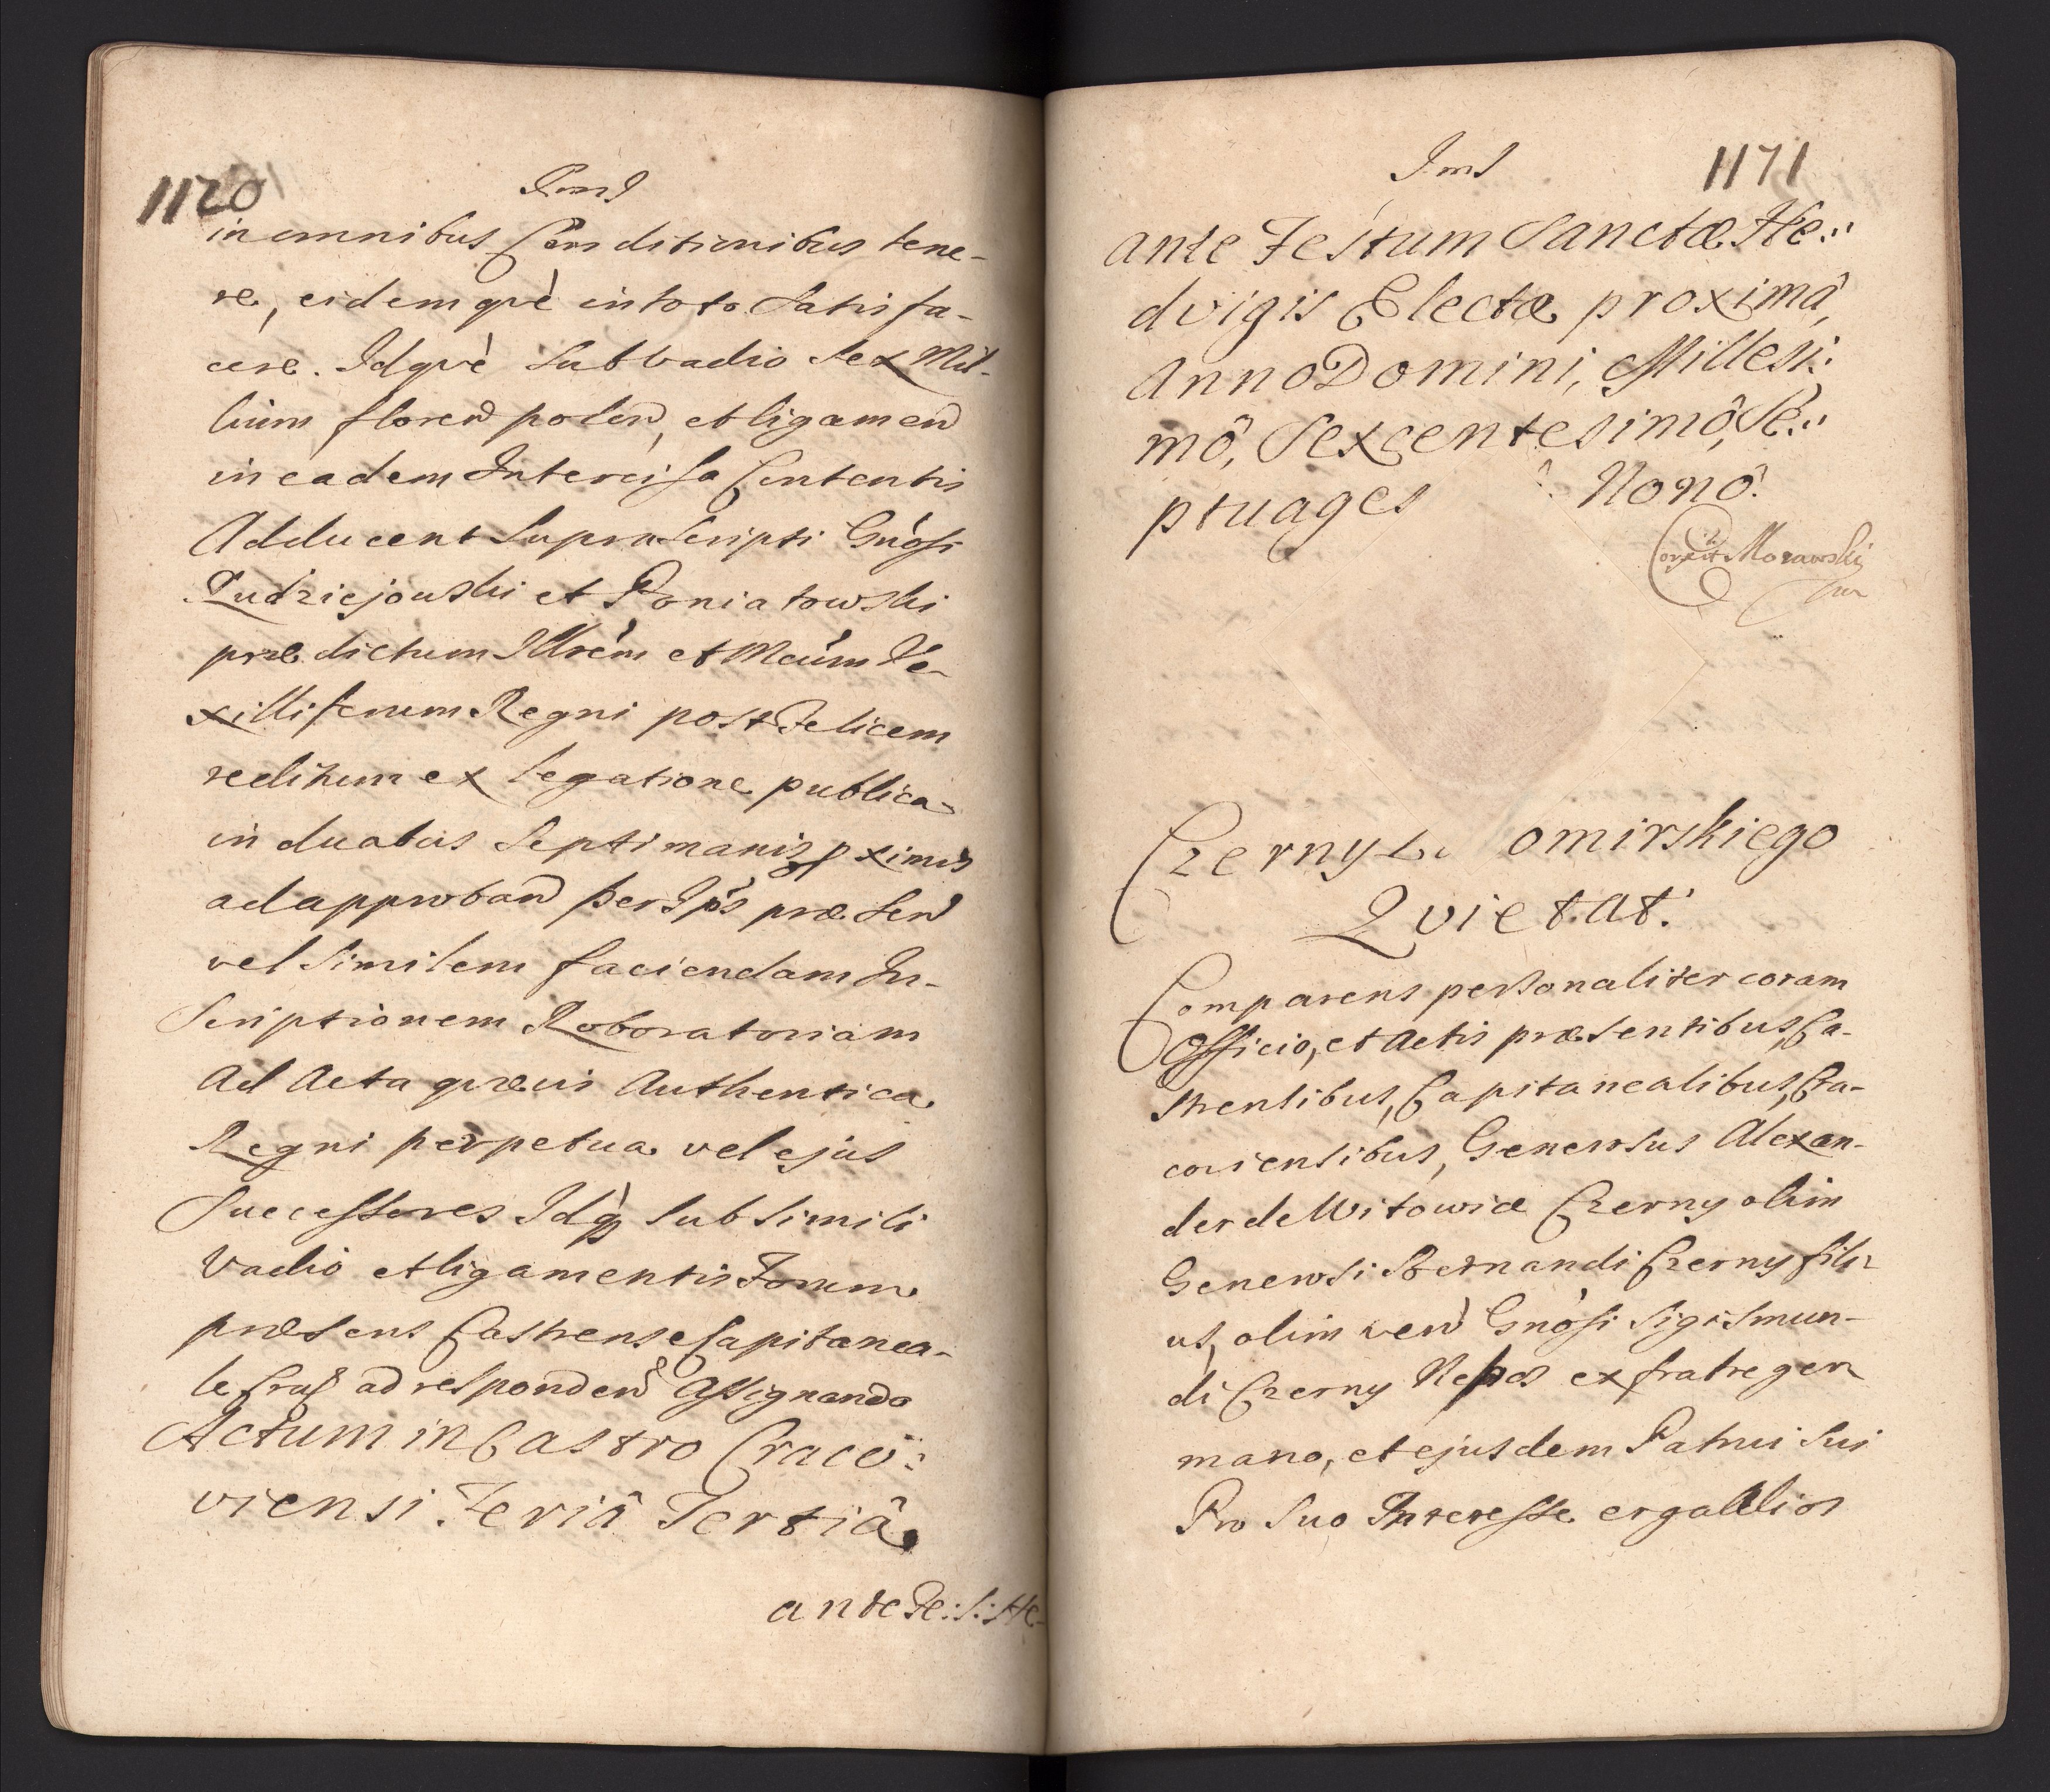 1170
in omnibus Conditionibus tene-
re, eidemq́vè in toto Satisfa-
cere. Idqvè Sub vadio Sex Mil-
lium floren polon, et ligamen
in eadem Intercisa Contentis
Adducent Suprascripti Gnosi
Radziejowski et Poniatowski
prædictum Illrem et Mcum Ve-
xilliferum Regni post Felicem
reditum ex legatione publica
in duabus Septimanis pximis
ad approband per Ipos præsen
vel Similem faciendam In-
Scriptionem Roboratoriam
Ad Acta qvævis Authentica
Regni perpetua vel ejus
Successores Idq Sub Simili
Vadio et ligamentis Forum
præsens Castrense Capitanea-
le Crac ad responden Assignando
Actum in Castro Craco:
viensi Feriâ Tertiâ
ante Fe: S: He-
1171
ante Festum Sanctæ He:
dvigis Electæ proximâ,
Anno Domini, Millesi:
mô, Sexcentesimô, Se:
ptuages Nonô.
Corexit Morawski
Czerny omirskiego
Qvietat:
Comparens personaliter coram
Officio, et Actis præsentibus, Ca-
strensibus, Capitanealibus, Cra-
coviensibus, Generosus Alexan-
der de Witowice Czerny olim
Generosi Bernandi Czerny fili-
us, olim vero Gnosi Sigismun-
di Czerny Nepos ex fratre ger
mano, et ejusdem Patrui Sui
Pro Suo Interesse erga Alios